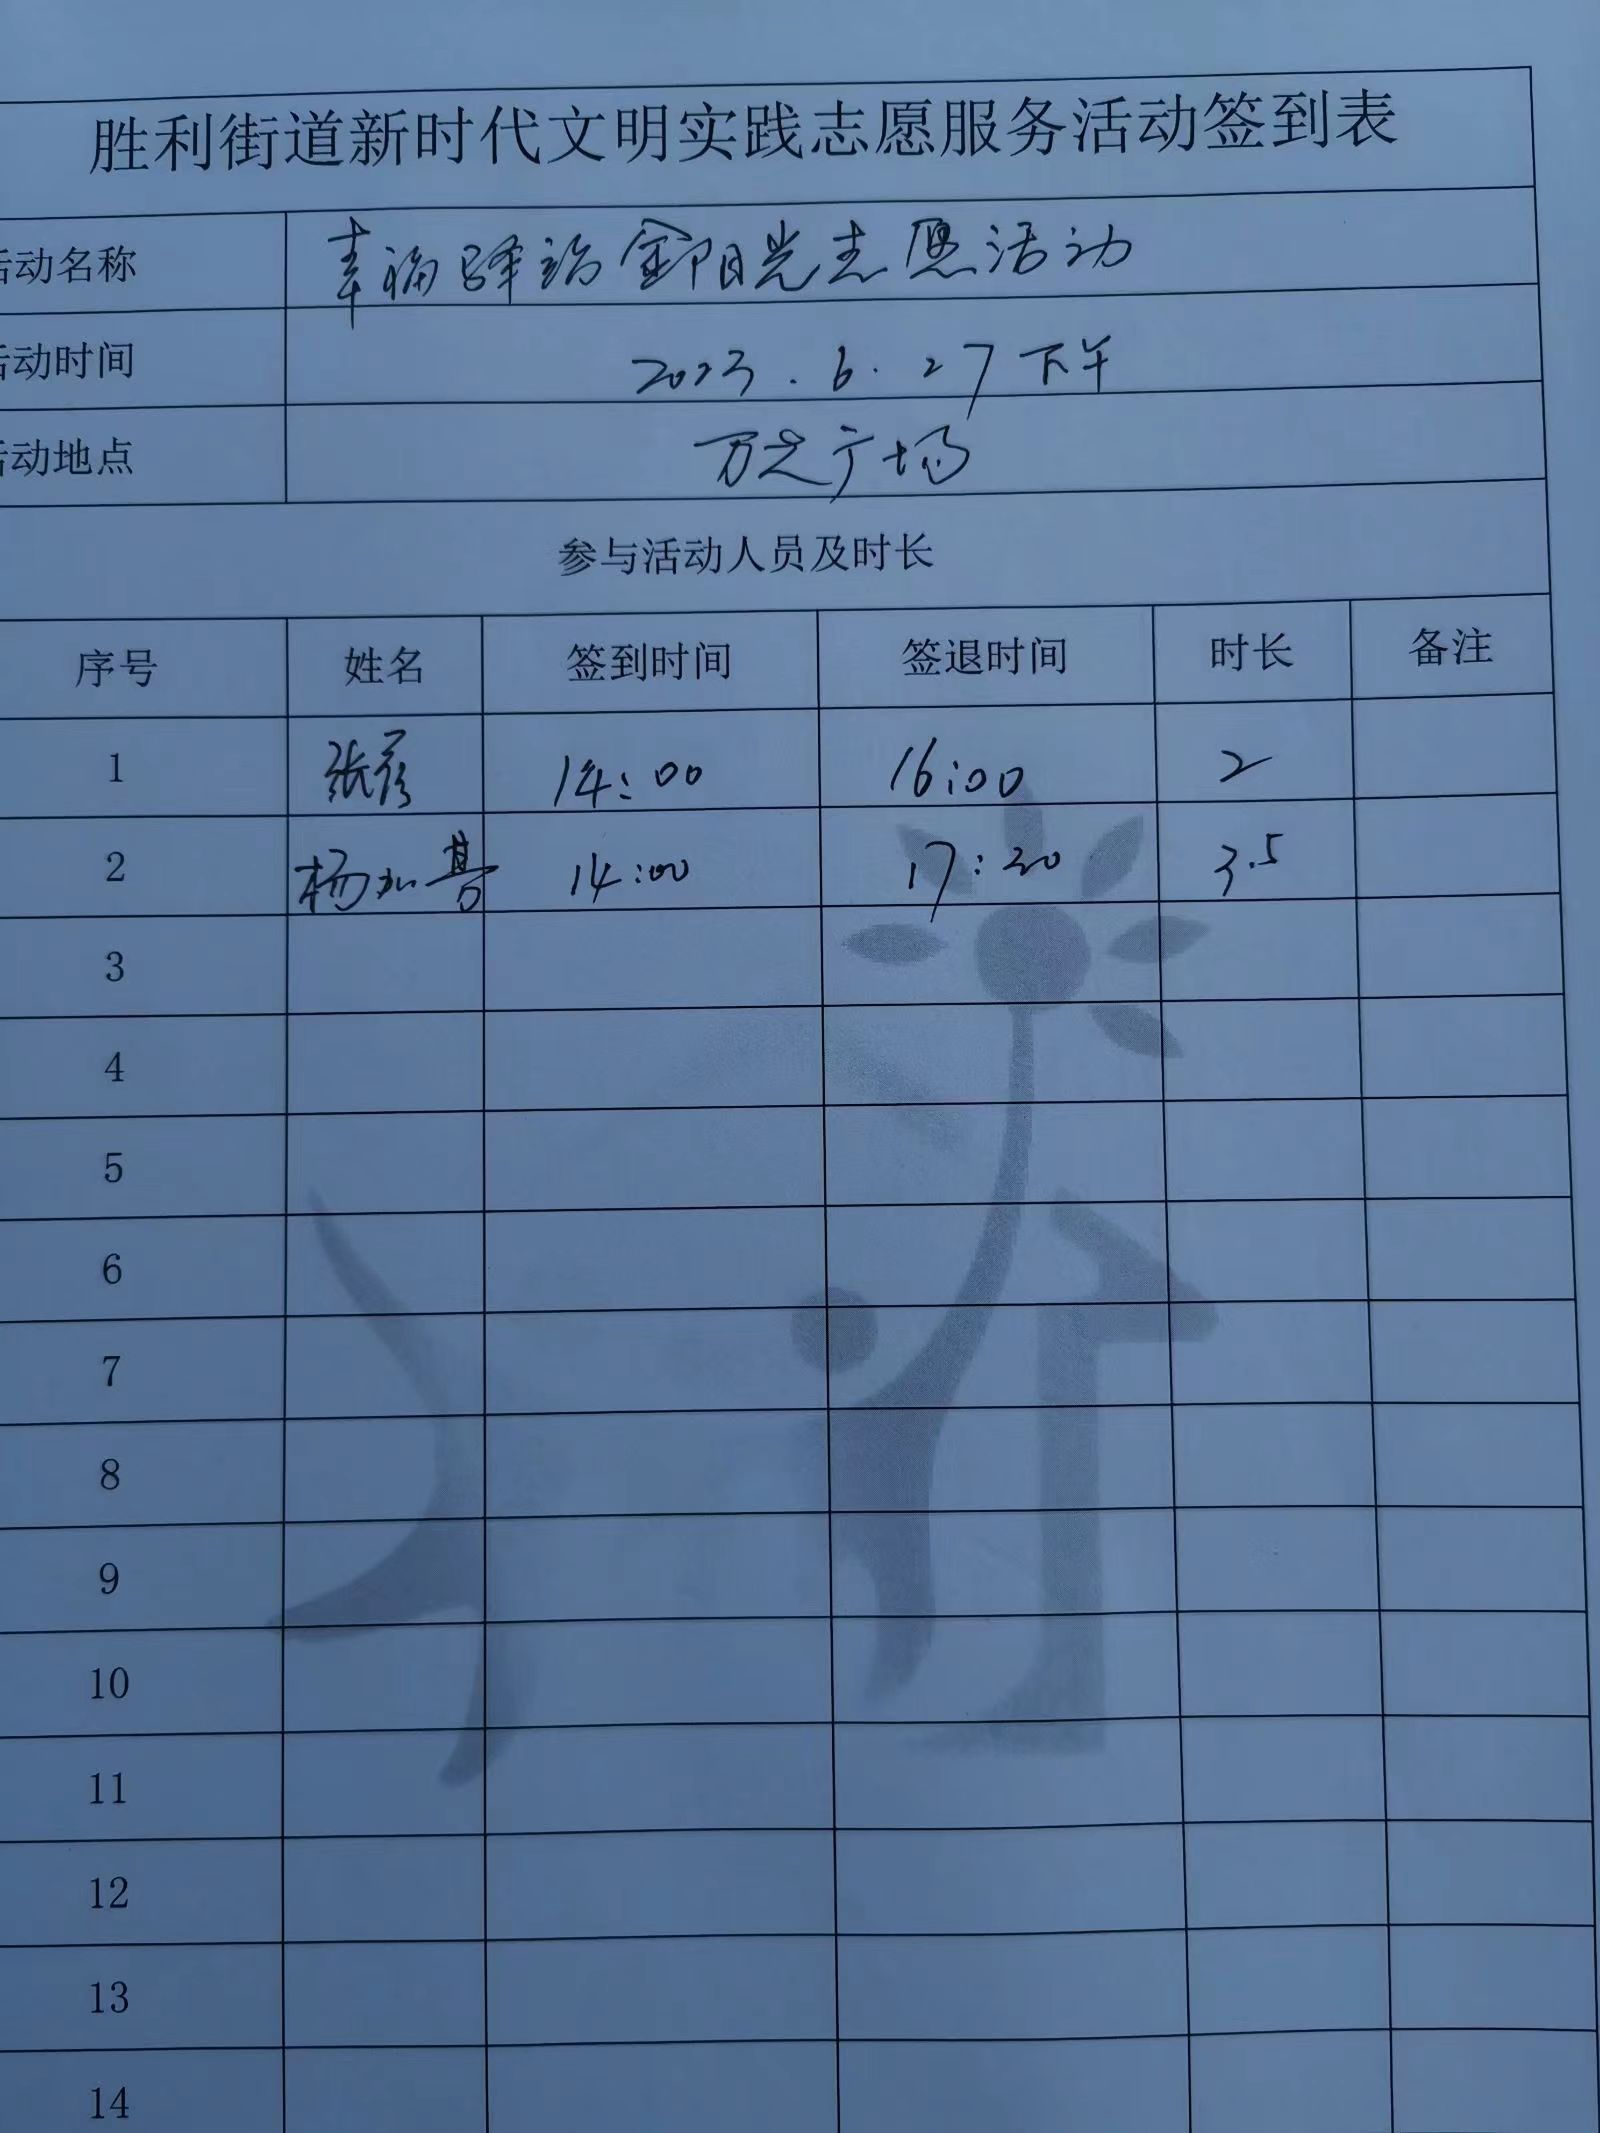 胜利街道新时代文明实践志愿服务活动签到表
活动名称 幸福驿站金阳光志愿活动
活动时间 2023.6.27下午
活动地点 万达广场
参与活动人员及时长
序号 姓名 签到时间 签退时间 时长 备注
1 张 14:00 16:00 2
2 杨 14:00 17:30 3.5
3
4
5
6
7
8
9
10
11
12
13
14